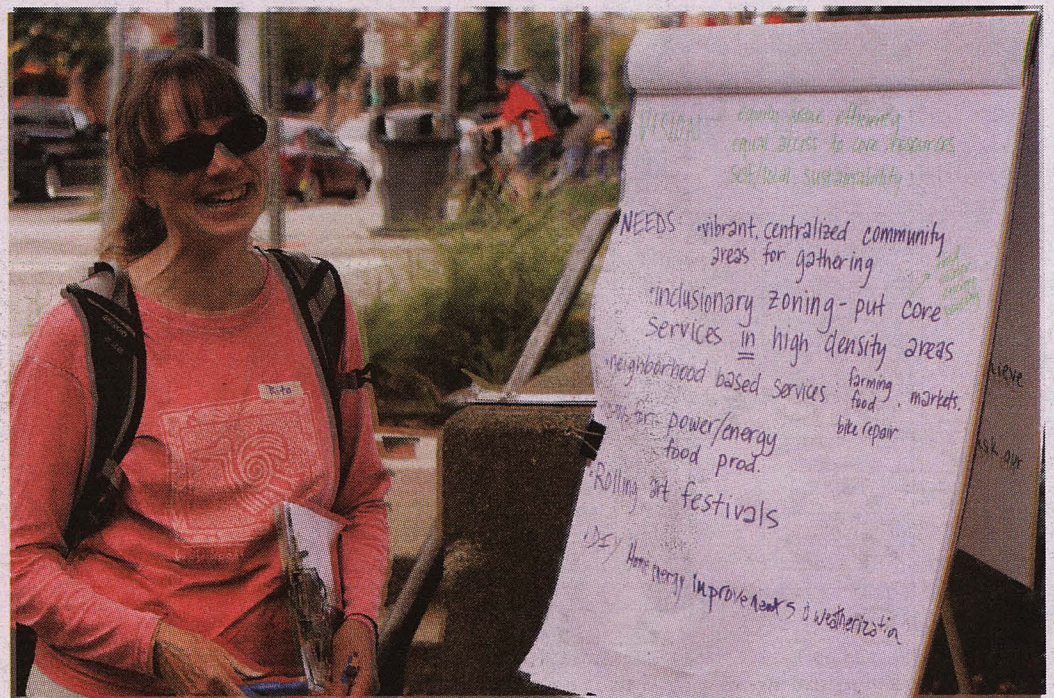 Rita
VISION: home efficiency
equal access to core resources
self/local sustainability
NEEDS: • vibrant, centralized community
areas for gathering
• inclusionary zoning - put core
services in high density areas
• neighborhood based services: farming, markets,
food
bike repair
for power/energy
food prod.
• Rolling art festivals
• DIY Home energy improvements & weatherization